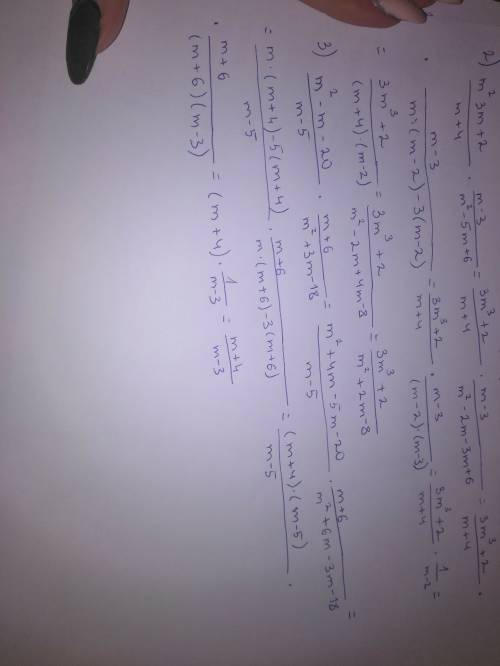 2) m² 3m+2/m+4 · m-3/m²-5m+6 = 3m³+2/m+4 · m-3/m²-2m-3m+6 = 3m³+2/m+4 ·
· m-3/m·(m-2)-3(m-2) = 3m³+2/m+4 · m-3/(m-2)·(m-3) = 3m³+2/m+4 · 1/m-2 =
= 3m³+2/(m+4)·(m-2) = 3m³+2/m²-2m+4m-8 = 3m³+2/m²+2m-8
3) m²-m-20/m-5 · m+6/m²+3m-18 = m²+4m-5m-20/m-5 · m+6/m²+6m-3m-18 =
= m·(m+4)-5(m+4)/m-5 · m+6/m·(m+6)-3(m+6) = (m+4)·(m-5)/m-5 ·
· m+6/(m+6)(m-3) = (m+4)· 1/m-3 = m+4/m-3